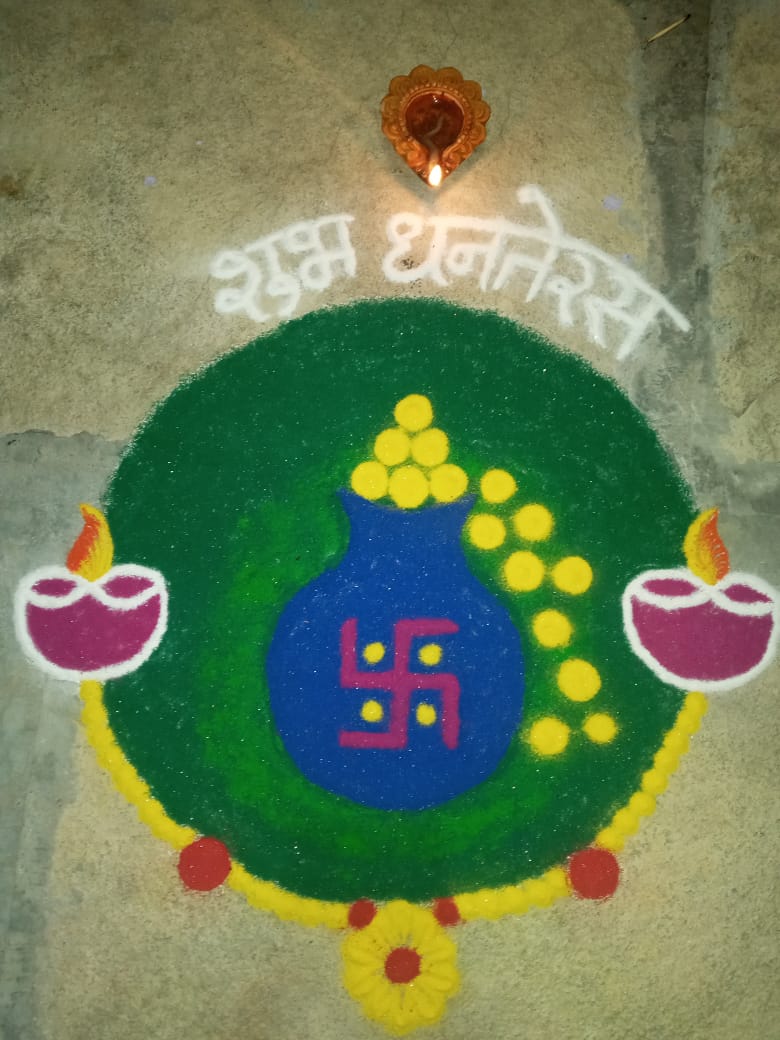 शुभ धनतेरस